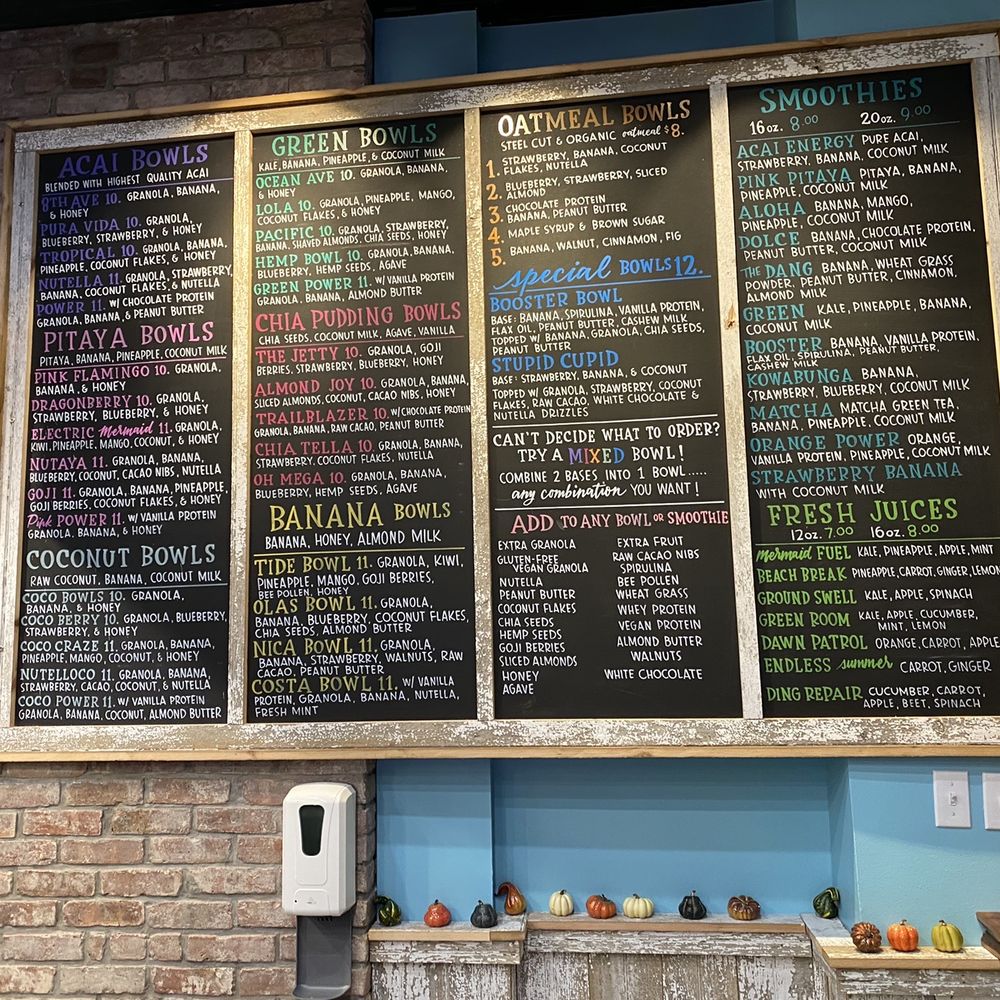 ACAI BOWLS
BLENDED WITH HIGHEST QUALITY ACAI
8TH AVE 10. GRANOLA, BANANA,
& HONEY
PURA VIDA 10. GRANOLA,
BLUEBERRY, STRAWBERRY, & HONEY
TROPICAL 10. GRANOLA, BANANA,
PINEAPPLE, COCONUT FLAKES, & HONEY
NUTELLA 11. GRANOLA, STRAWBERRY,
BANANA, COCONUT FLAKES, & NUTELLA
POWER 11. W/ CHOCOLATE PROTEIN
GRANOLA, BANANA, & PEANUT BUTTER
PITAYA BOWLS
PITAYA, BANANA, PINEAPPLE, COCONUT MILK
PINK FLAMINGO 10. GRANOLA,
BANANA, & HONEY
DRAGONBERRY 10. GRANOLA,
STRAWBERRY, BLUEBERRY, & HONEY
ELECTRIC Mermaid 11. GRANOLA,
KIWI, PINEAPPLE, MANGO, COCONUT, & HONEY
NUTAYA 11. GRANOLA, BANANA,
BLUEBERRY, COCONUT, CACAO NIBS, NUTELLA
GOJI 11. GRANOLA, BANANA, PINEAPPLE,
GOJI BERRIES, COCONUT FLAKES, & HONEY
Pink POWER 11. W/ VANILLA PROTEIN
GRANOLA, BANANA, ALMOND BUTTER
COCONUT BOWLS
RAW COCONUT, BANANA, COCONUT MILK
COCO BOWLS 10. GRANOLA,
BANANA, & HONEY
COCO BERRY 10. GRANOLA, BLUEBERRY,
STRAWBERRY, & HONEY
COCO CRAZE 11. GRANOLA, BANANA,
PINEAPPLE, MANGO, COCONUT, & HONEY
NUTELLOCO 11. GRANOLA, BANANA,
STRAWBERRY, CACAO, COCONUT, & NUTELLA
COCO POWER 11. W/ VANILLA PROTEIN
GRANOLA, BANANA, COCONUT, ALMOND BUTTER
GREEN BOWLS
KALE, BANANA, PINEAPPLE, & COCONUT MILK
OCEAN AVE 10. GRANOLA, BANANA,
& HONEY
LOLA 10. GRANOLA, PINEAPPLE, MANGO,
COCONUT FLAKES, & HONEY
PACIFIC 10. GRANOLA, STRAWBERRY,
BANANA, SHAVED ALMONDS, CHIA SEEDS, HONEY
HEMP BOWL 10. GRANOLA, BANANA,
BLUEBERRY, HEMP SEEDS, AGAVE
GREEN POWER 11. W/ VANILLA PROTEIN
GRANOLA, BANANA, ALMOND BUTTER
CHIA PUDDING BOWLS
CHIA SEEDS, COCONUT MILK, AGAVE, VANILLA
THE JETTY 10. GRANOLA, GOJI
BERRIES, STRAWBERRY, BLUEBERRY, HONEY
ALMOND JOY 10. GRANOLA, BANANA,
SLICED ALMONDS, COCONUT, CACAO NIBS, HONEY
TRAILBLAZER 10. W/ CHOCOLATE PROTEIN
GRANOLA, BANANA, RAW CACAO, PEANUT BUTTER
CHIA TELLA 10. GRANOLA, BANANA,
STRAWBERRY, COCONUT FLAKES, NUTELLA
OH MEGA 10. GRANOLA, BANANA,
BLUEBERRY, HEMP SEEDS, AGAVE
BANANA BOWLS
BANANA, HONEY, ALMOND MILK
TIDE BOWL 11. GRANOLA, KIWI,
PINEAPPLE, MANGO, GOJI BERRIES,
BEE POLLEN, HONEY
OLAS BOWL 11. GRANOLA,
BANANA, BLUEBERRY, COCONUT FLAKES,
CHIA SEEDS, ALMOND BUTTER
NICA BOWL 11. GRANOLA,
BANANA, STRAWBERRY, WALNUTS, RAW
CACAO, PEANUT BUTTER
COSTA BOWL 11. W/ VANILLA
PROTEIN, GRANOLA, BANANA, NUTELLA,
FRESH MINT
OATMEAL BOWLS
STEEL CUT & ORGANIC oatmeal $8.
1. STRAWBERRY, BANANA, COCONUT
FLAKES, NUTELLA
2. BLUEBERRY, STRAWBERRY, SLICED
ALMOND
3. CHOCOLATE PROTEIN
BANANA, PEANUT BUTTER
4. MAPLE SYRUP & BROWN SUGAR
5. BANANA, WALNUT, CINNAMON, FIG
special BOWLS 12.
BOOSTER BOWL
BASE: BANANA, SPIRULINA, VANILLA PROTEIN,
FLAX OIL, PEANUT BUTTER, CASHEW MILK
TOPPED W/ BANANA, GRANOLA, CHIA SEEDS,
PEANUT BUTTER
STUPID CUPID
BASE: STRAWBERRY, BANANA, & COCONUT
TOPPED W/ GRANOLA, STRAWBERRY, COCONUT
FLAKES, RAW CACAO, WHITE CHOCOLATE &
NUTELLA DRIZZLES
CAN'T DECIDE WHAT TO ORDER?
TRY A MIXED BOWL!
COMBINE 2 BASES INTO 1 BOWL.....
any combination YOU WANT!
ADD TO ANY BOWL OR SMOOTHIE
EXTRA GRANOLA
GLUTEN-FREE
VEGAN GRANOLA
NUTELLA
PEANUT BUTTER
COCONUT FLAKES
CHIA SEEDS
HEMP SEEDS
GOJI BERRIES
SLICED ALMONDS
HONEY
AGAVE
EXTRA FRUIT
RAW CACAO NIBS
SPIRULINA
BEE POLLEN
WHEAT GRASS
WHEY PROTEIN
VEGAN PROTEIN
ALMOND BUTTER
WALNUTS
WHITE CHOCOLATE
SMOOTHIES
16oz. 8.00 20oz. 9.00
ACAI ENERGY PURE ACAI,
STRAWBERRY, BANANA, COCONUT MILK
PINK PITAYA PITAYA, BANANA,
PINEAPPLE, COCONUT MILK
ALOHA BANANA, MANGO,
PINEAPPLE, COCONUT MILK
DOLCE BANANA, CHOCOLATE PROTEIN,
PEANUT BUTTER, COCONUT MILK
THE DANG BANANA, WHEAT GRASS
POWDER, PEANUT BUTTER, CINNAMON,
ALMOND MILK
GREEN KALE, PINEAPPLE, BANANA,
COCONUT MILK
BOOSTER BANANA, VANILLA PROTEIN,
FLAX OIL, SPIRULINA, PEANUT BUTTER,
CASHEW MILK
KOWABUNGA BANANA,
STRAWBERRY, BLUEBERRY, COCONUT MILK
MATCHA MATCHA GREEN TEA,
BANANA, PINEAPPLE, COCONUT MILK
ORANGE POWER ORANGE,
VANILLA PROTEIN, PINEAPPLE, COCONUT MILK
STRAWBERRY BANANA
WITH COCONUT MILK
FRESH JUICES
12oz. 7.00 16oz. 8.00
Mermaid FUEL KALE, PINEAPPLE, APPLE, MINT
BEACH BREAK PINEAPPLE, CARROT, GINGER, LEMON
GROUND SWELL KALE, APPLE, SPINACH
GREEN ROOM KALE, APPLE, CUCUMBER,
MINT, LEMON
DAWN PATROL ORANGE, CARROT, APPLE
ENDLESS summer CARROT, GINGER
DING REPAIR CUCUMBER, CARROT,
APPLE, BEET, SPINACH